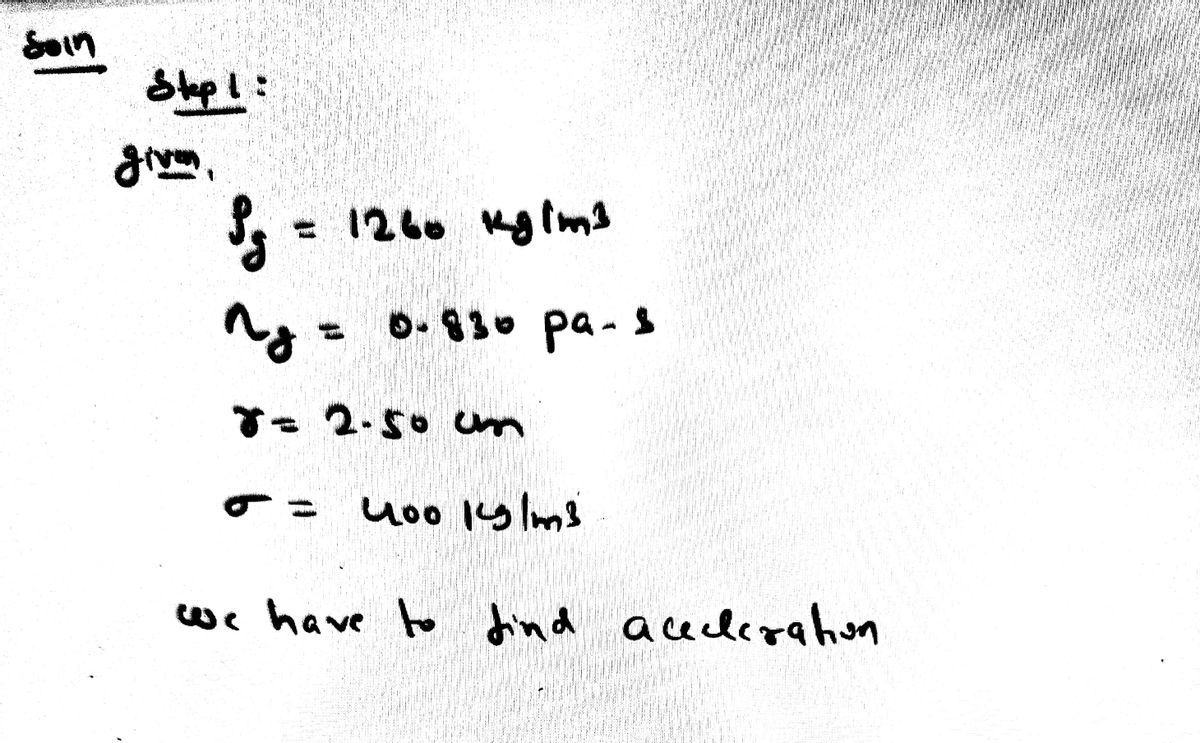 Soln
Step 1:
given,
ρg = 1260 kg/m3
ηg = 0.830 pa-s
r = 2.50 cm
σ = 400 kg/m3
we have to find acceleration